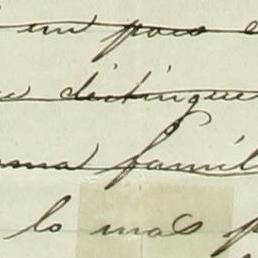 un pais
distingue
ma famil
lo mas p